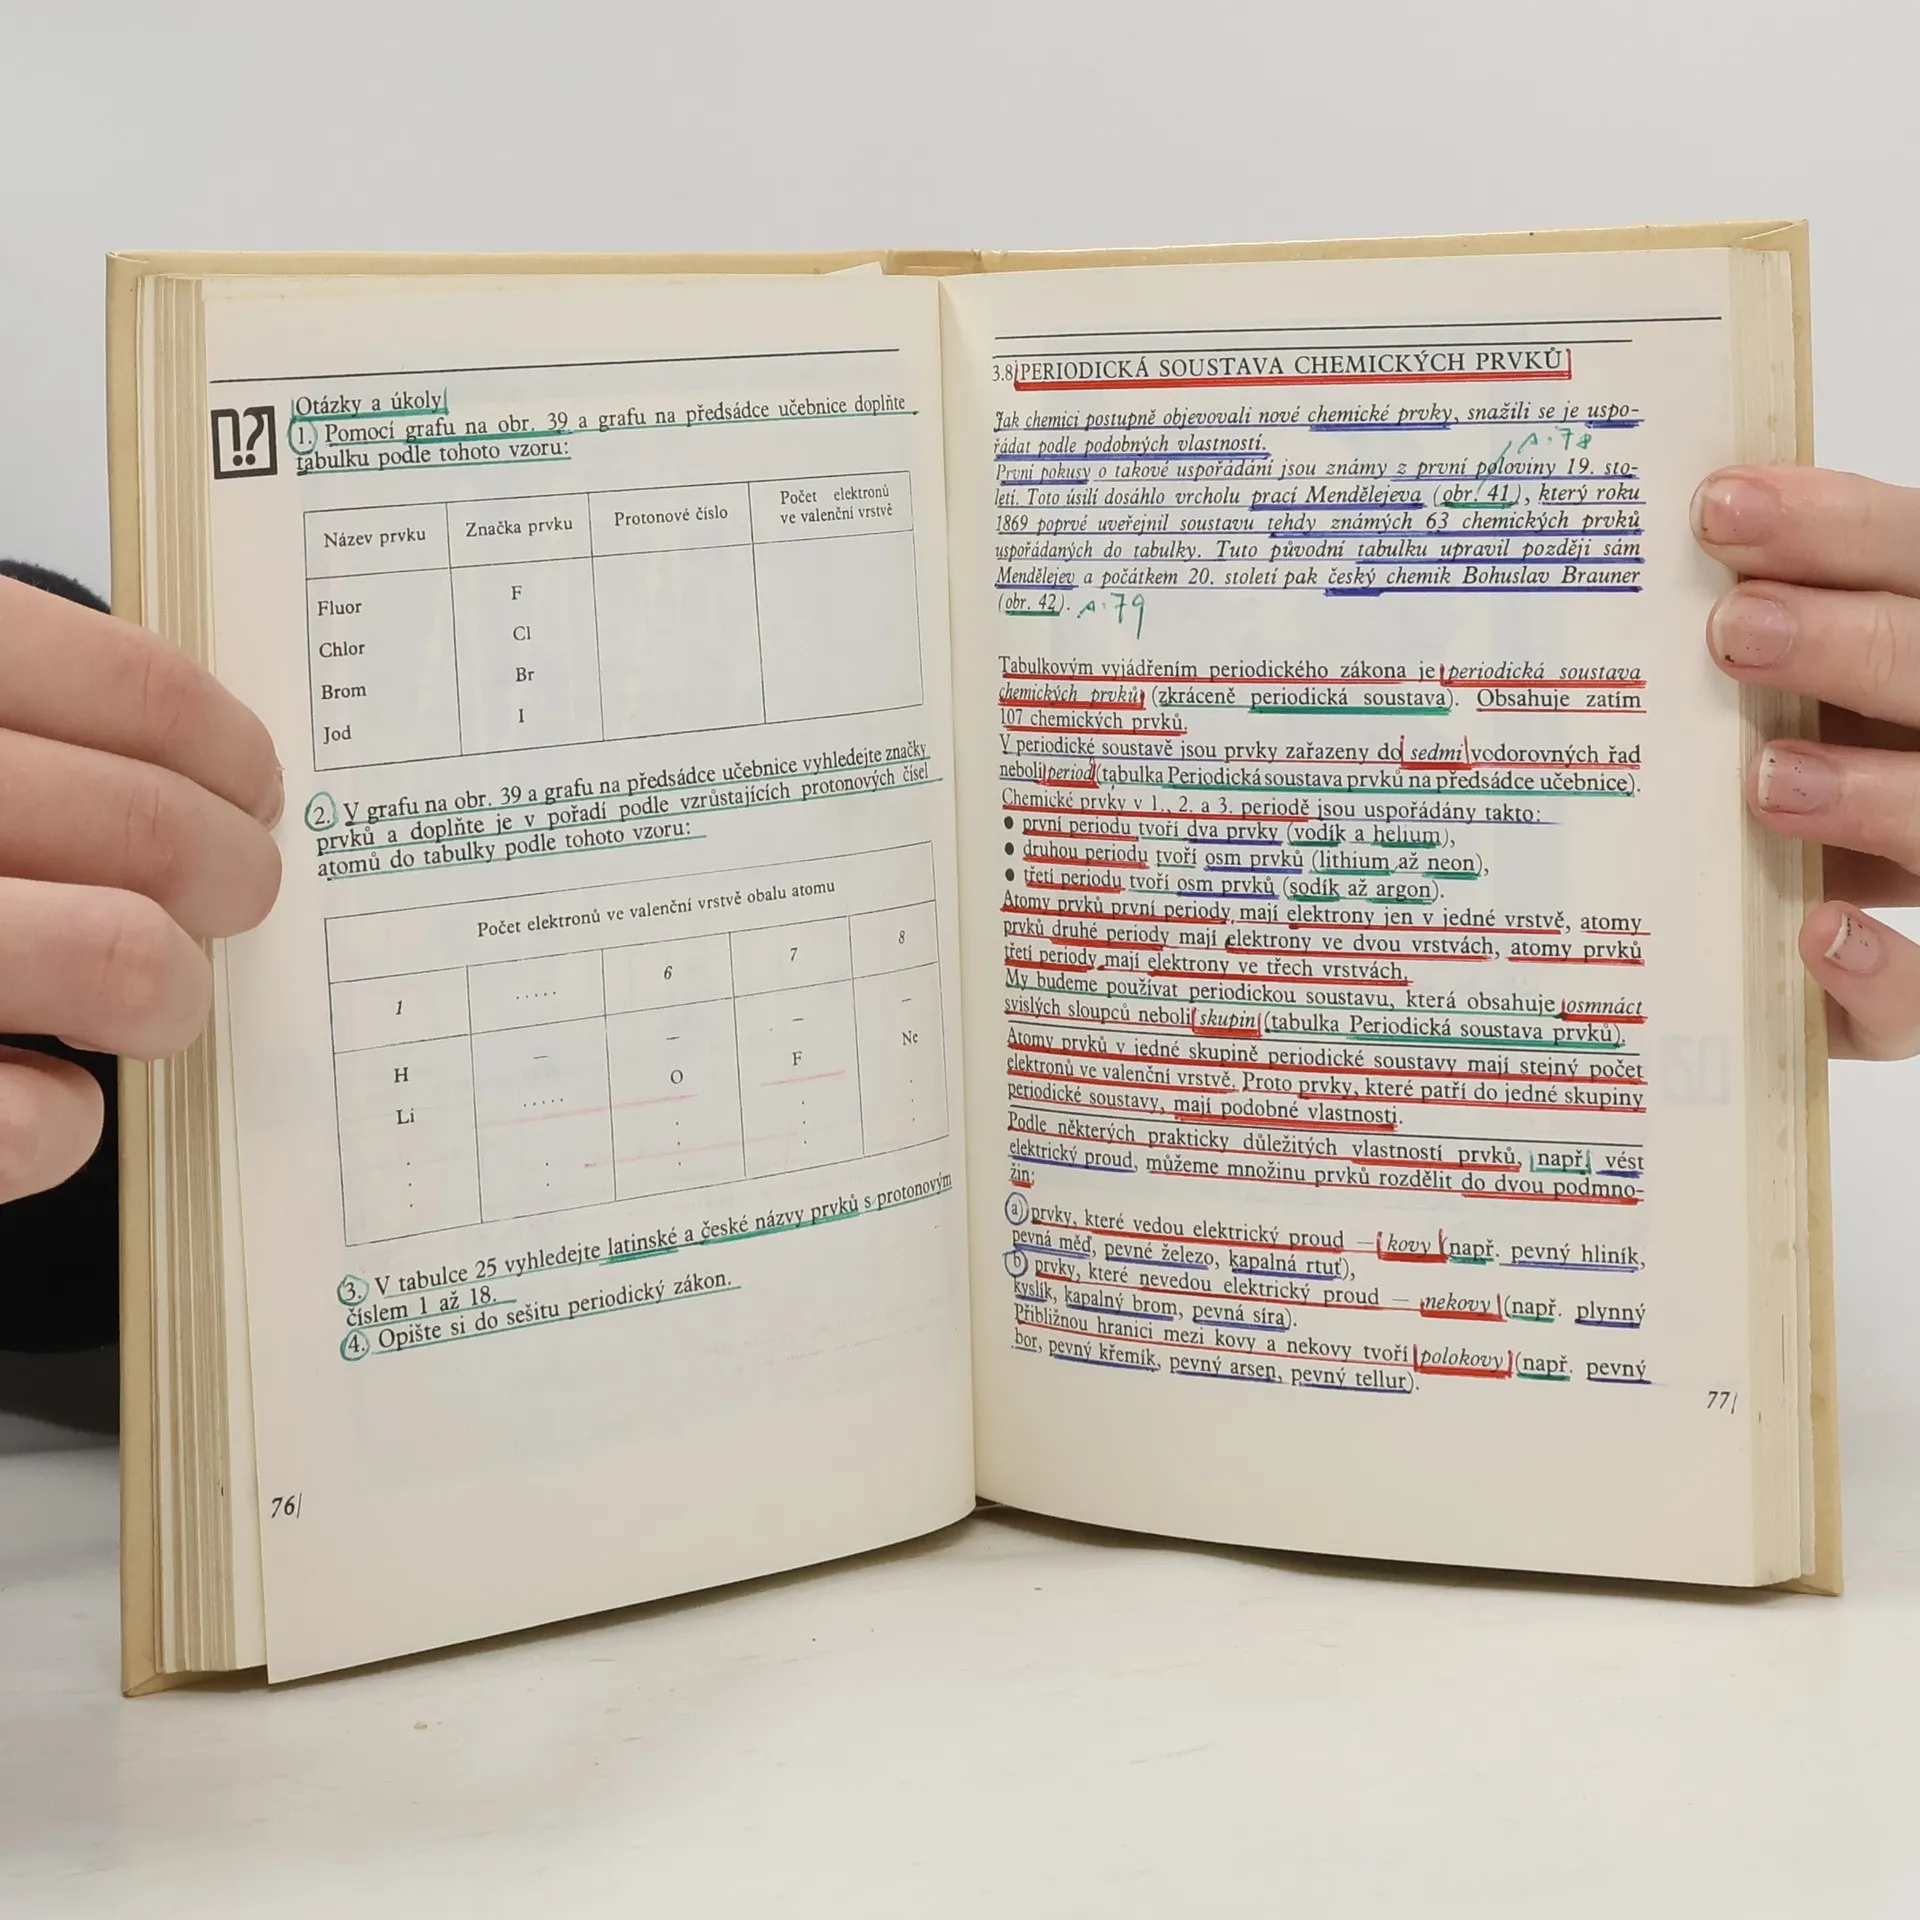 Otázky a úkoly
1. Pomocí grafu na obr. 39 a grafu na předsádce učebnice doplňte
tabulku podle tohoto vzoru:
Název prvku Značka prvku Protonové číslo Počet elektronů
ve valenční vrstvě
Fluor F
Chlor Cl
Brom Br
Jod I
2. V grafu na obr. 39 a grafu na předsádce učebnice vyhledejte značky
prvků a doplňte je v pořadí podle vzrůstajících protonových čísel
atomů do tabulky podle tohoto vzoru:
Počet elektronů ve valenční vrstvě obalu atomu
1 ..... 6 7 8
H – – – –
Li ..... O F Ne
3. V tabulce 25 vyhledejte latinské a české názvy prvků s protonovým
číslem 1 až 18.
4. Opište si do sešitu periodický zákon.
76/
3.8 PERIODICKÁ SOUSTAVA CHEMICKÝCH PRVKŮ
Jak chemici postupně objevovali nové chemické prvky, snažili se je uspo-
řádat podle podobných vlastností.
s. 78
První pokusy o takové uspořádání jsou známy z první poloviny 19. sto-
letí. Toto úsilí dosáhlo vrcholu prací Mendělejeva (obr. 41), který roku
1869 poprvé uveřejnil soustavu tehdy známých 63 chemických prvků
uspořádaných do tabulky. Tuto původní tabulku upravil později sám
Mendělejev a počátkem 20. století pak český chemik Bohuslav Brauner
(obr. 42). s. 79
Tabulkovým vyjádřením periodického zákona je periodická soustava
chemických prvků (zkráceně periodická soustava). Obsahuje zatím
107 chemických prvků.
V periodické soustavě jsou prvky zařazeny do sedmi vodorovných řad
neboli period (tabulka Periodická soustava prvků na předsádce učebnice).
Chemické prvky v 1., 2. a 3. periodě jsou uspořádány takto:
● první periodu tvoří dva prvky (vodík a helium),
● druhou periodu tvoří osm prvků (lithium až neon),
● třetí periodu tvoří osm prvků (sodík až argon).
Atomy prvků první periody mají elektrony jen v jedné vrstvě, atomy
prvků druhé periody mají elektrony ve dvou vrstvách, atomy prvků
třetí periody mají elektrony ve třech vrstvách.
My budeme používat periodickou soustavu, která obsahuje osmnáct
svislých sloupců neboli skupin (tabulka Periodická soustava prvků).
Atomy prvků v jedné skupině periodické soustavy mají stejný počet
elektronů ve valenční vrstvě. Proto prvky, které patří do jedné skupiny
periodické soustavy, mají podobné vlastnosti.
Podle některých prakticky důležitých vlastností prvků, např. vést
elektrický proud, můžeme množinu prvků rozdělit do dvou podmno-
žin:
a) prvky, které vedou elektrický proud — kovy (např. pevný hliník,
pevná měď, pevné železo, kapalná rtuť),
b) prvky, které nevedou elektrický proud — nekovy (např. plynný
kyslík, kapalný brom, pevná síra).
Přibližnou hranici mezi kovy a nekovy tvoří polokovy (např. pevný
bor, pevný křemík, pevný arsen, pevný tellur).
77/